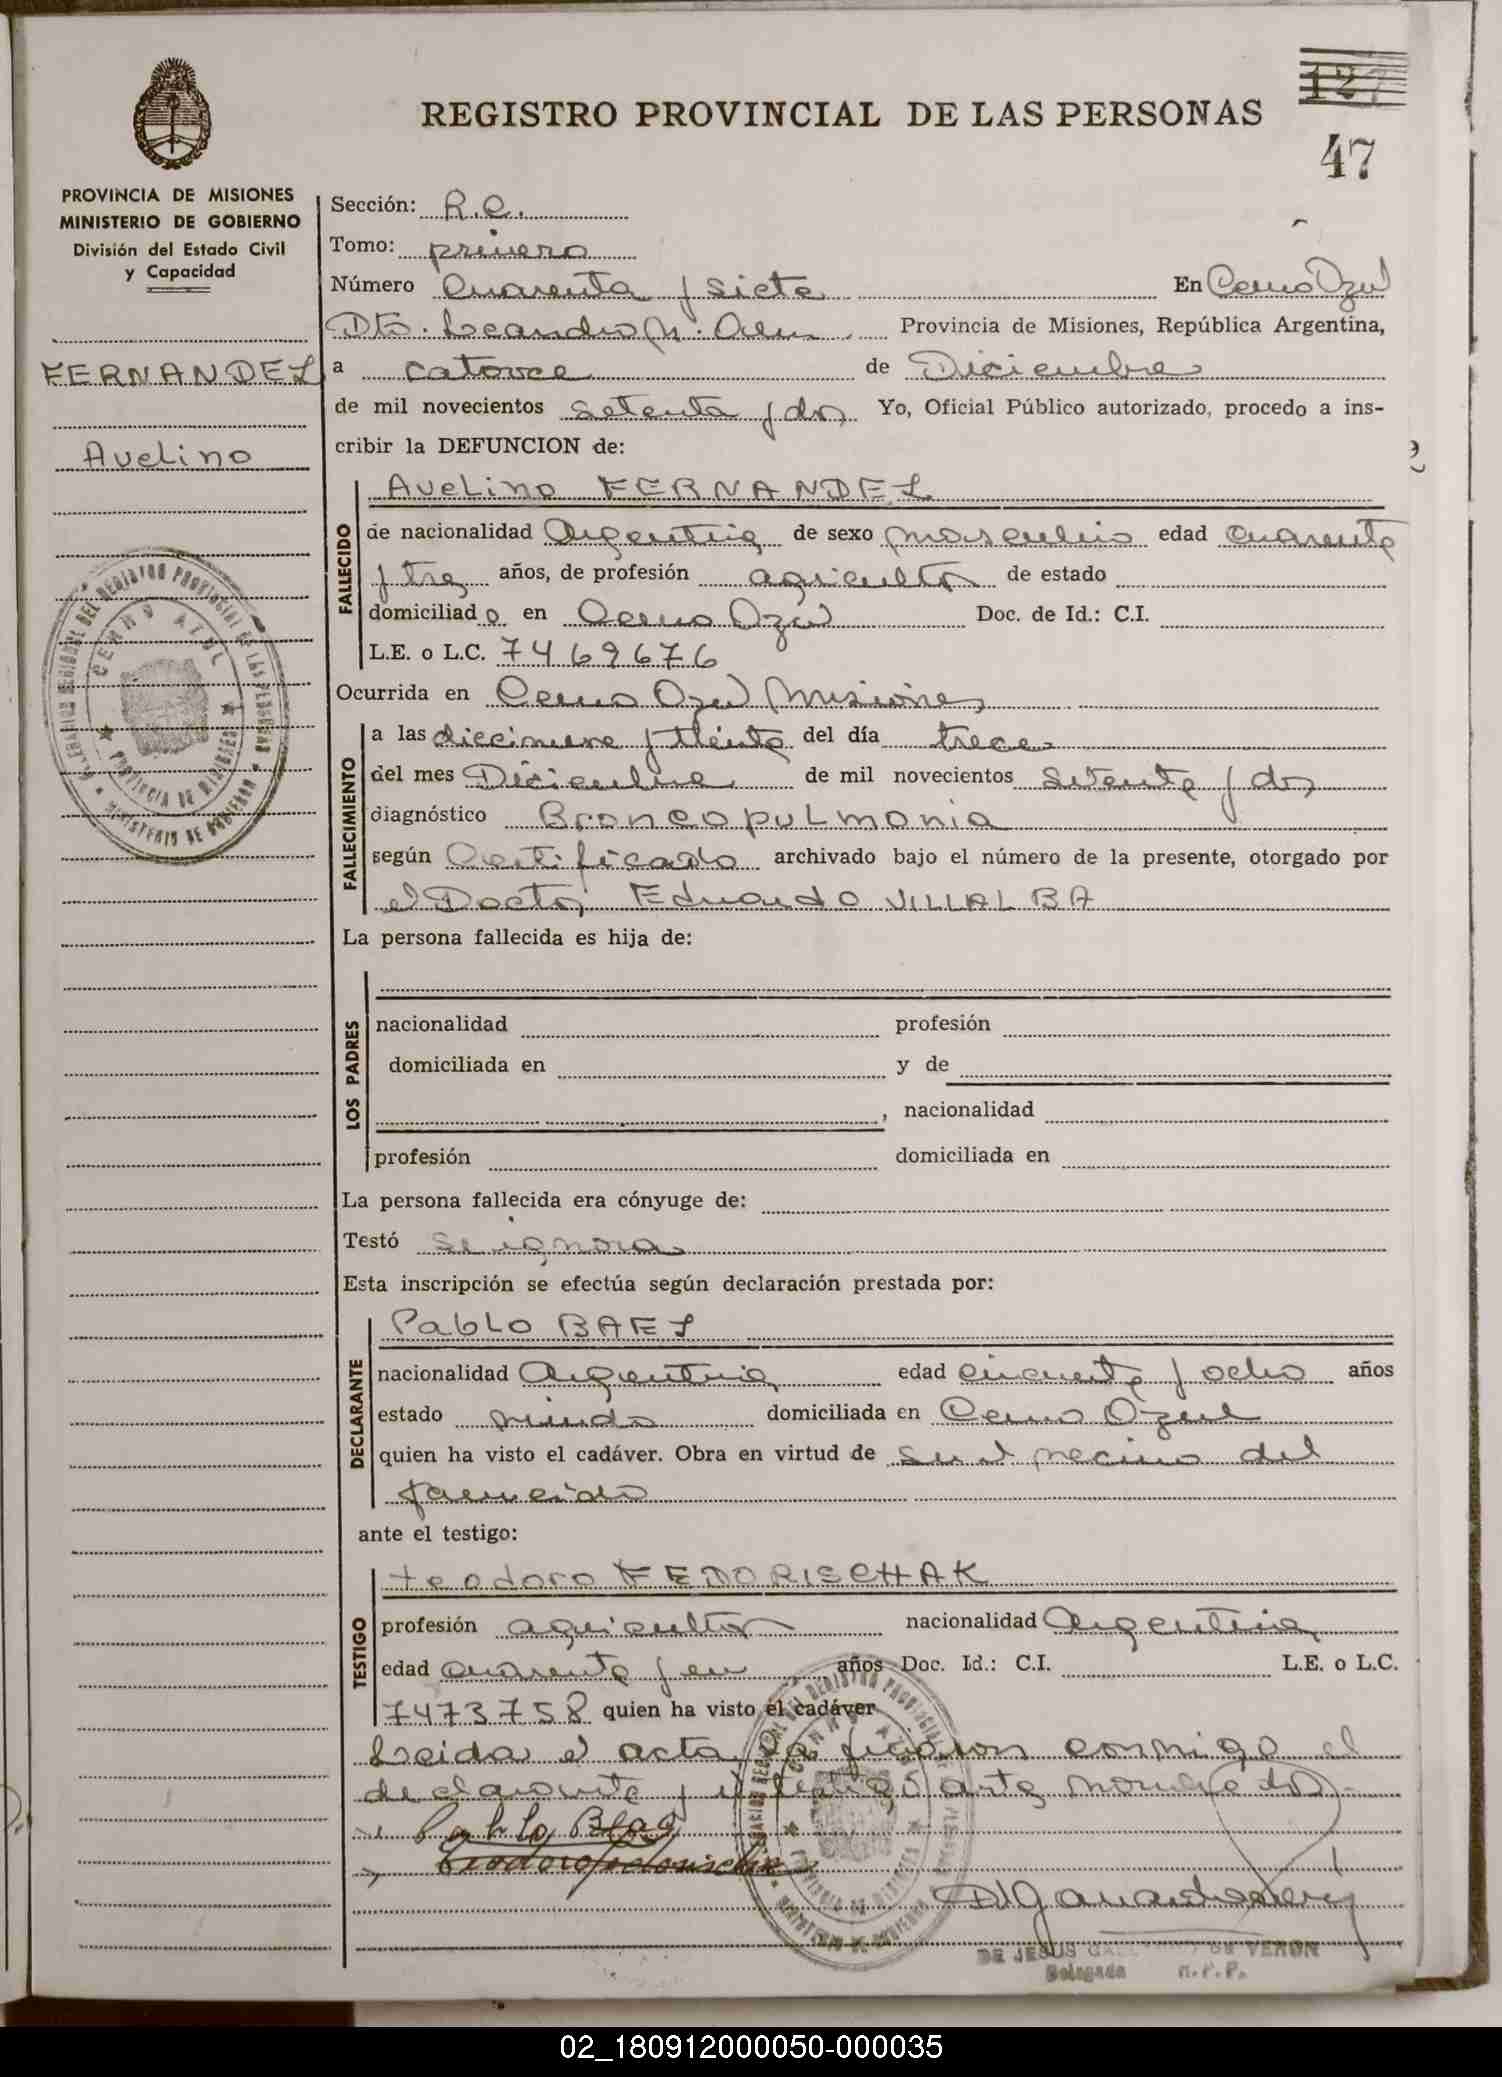 127
REGISTRO PROVINCIAL DE LAS PERSONAS
47
PROVINCIA DE MISIONES
MINISTERIO DE GOBIERNO
División del Estado Civil
y Capacidad
FERNANDEZ
Avelino
Sección: R.C.
Tomo: primero
Número Cuarenta y siete En Cerro Azul
Dto. Leandro N. Alem Provincia de Misiones, República Argentina,
a catorce de Diciembre
de mil novecientos setenta y dos Yo, Oficial Público autorizado, procedo a ins-
cribir la DEFUNCION de:
Avelino FERNANDEZ
FALLECIDO
de nacionalidad Argentina de sexo masculino edad cuarenta
y tres años, de profesión agricultor de estado
domiciliado en Cerro Azul Doc. de Id.: C.I.
L.E. o L.C. 7469676
Ocurrida en Cerro Azul Misiones
FALLECIMIENTO
a las diecinueve y treinta del día trece
del mes Diciembre de mil novecientos setenta y dos
diagnóstico Broncopulmonia
según Certificado archivado bajo el número de la presente, otorgado por
el Doctor Eduardo VILLALBA
La persona fallecida es hija de:
LOS PADRES
nacionalidad profesión
domiciliada en y de
, nacionalidad
profesión domiciliada en
La persona fallecida era cónyuge de:
Testó se ignora
Esta inscripción se efectúa según declaración prestada por:
Pablo BAEZ
DECLARANTE
nacionalidad Argentina edad cincuenta y ocho años
estado viudo domiciliada en Cerro Azul
quien ha visto el cadáver. Obra en virtud de ser vecino del
fallecido
ante el testigo:
Teodoro FEDORISCHAK
TESTIGO
profesión agricultor nacionalidad Argentina
edad cuarenta y un años Doc. Id.: C.I. L.E. o L.C.
7473758 quien ha visto el cadáver
Leida el acta, la firman conmigo el
declarante y el testigo antes nombrados.-
Pablo Baez
Teodoro Fedorischak
DE JESUS DE VERON
Delegada R.P.P.
02_180912000050-000035